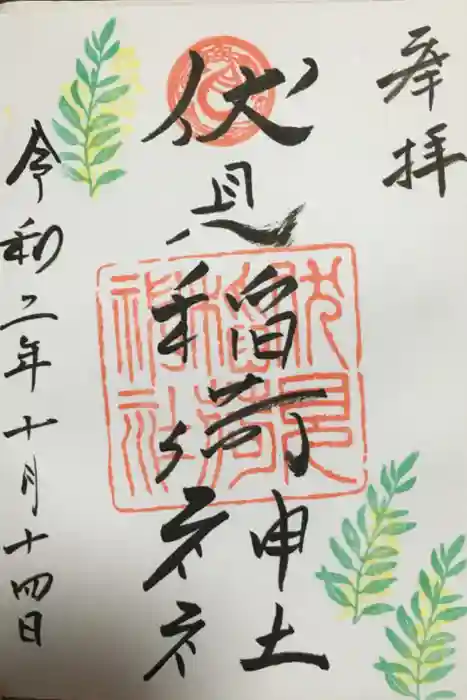 奉拝
伏見稲荷神社
令和二年十月十四日